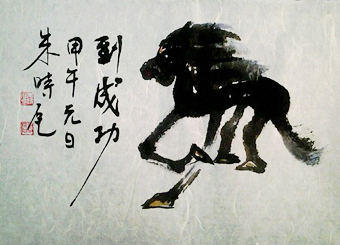 到成功
甲午元日
朱時